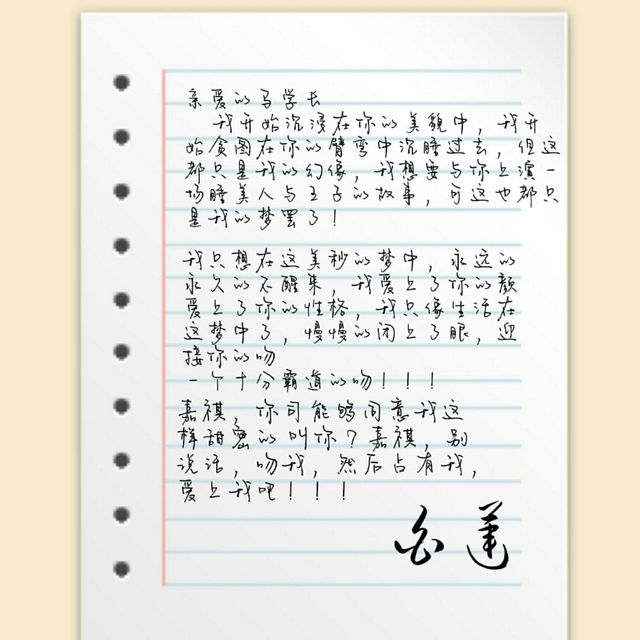 亲爱的马学长
我开始沉浸在你的美貌中，我开
始贪图在你的臂弯中沉睡过去，但这
都只是我的幻像，我想要与你上演一
场睡美人与王子的故事，可这也都只
是我的梦罢了！
我只想在这美秒的梦中，永远的
永久的不醒来，我爱上了你的颜
爱上了你的性格，我只像生活在
这梦中了，慢慢的闭上了眼，迎
接你的吻
一个十分霸道的吻！！！
嘉祺，你可能够同意我这
样甜密的叫你？嘉祺，别
说话，吻我，然后占有我，
爱上我吧！！！
白莲